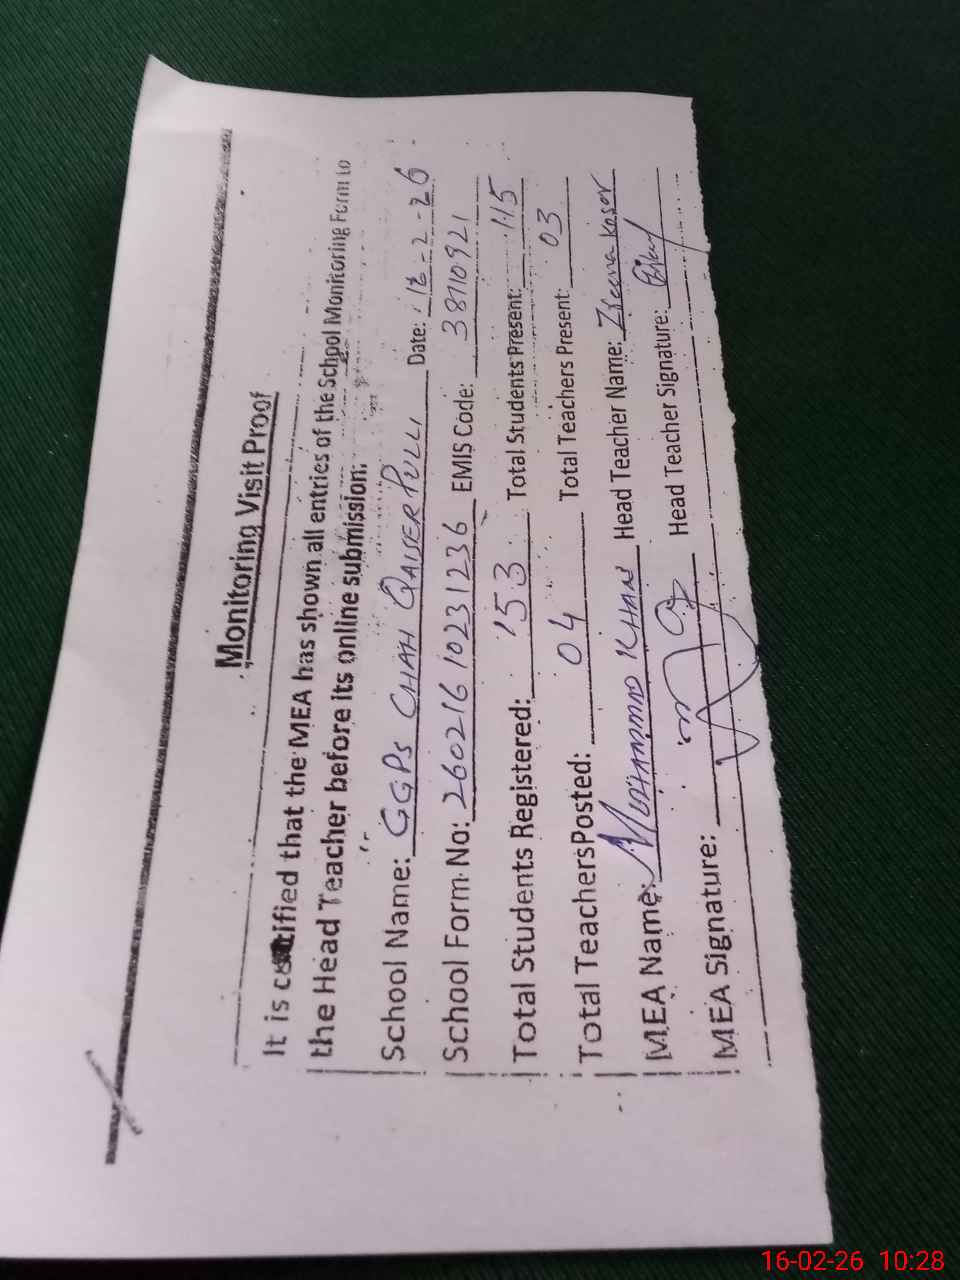 Monitoring Visit Proof
It is certified that the MEA has shown all entries of the School Monitoring Form to
the Head Teacher before its online submission:
School Name: GGPS CHAH QAISER PULLI Date: 16-2-26
School Form No: 260216 10231236 EMIS Code: 38110921
Total Students Registered: 153 Total Students Present: 115
Total Teachers Posted: 04 Total Teachers Present: 03
MEA Name: MUHAMMAD KHAN Head Teacher Name:
MEA Signature: Head Teacher Signature:
16-02-26 10:28